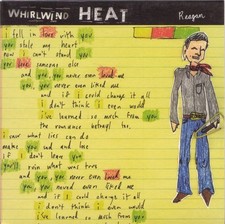 WHIRLWIND HEAT
Reagan
i fell in love with you
you stole my heart
now i can't stand you
you love someone else
and you, you never even loved me
you, you never even liked me
and if i could change it all
i don't think i even would
i've learned so much from you
the romance betrays too
i know what lies can do
makes you sad and lose
if i don't leave you
you'll ruin what was true
and you, you never even loved me
you, you never even liked me
and if i could change it all
i don't think i even would
i've learned so much from you